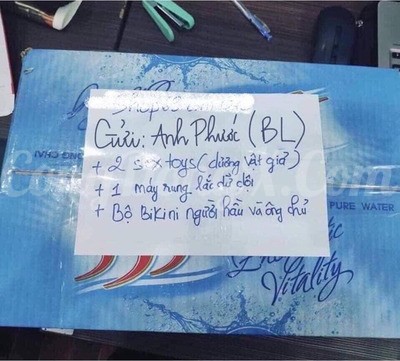 Gửi: Anh Phước (BL)
+ 2 sextoys (dương vật giả)
+ 1 máy rung lắc dữ dội
+ Bộ Bikini người hầu và ông chủ
PURE WATER
Vitality